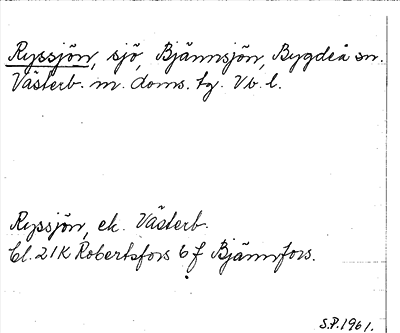 Ryssjön, sjö, Bjännsjön, Bygdeå sn.
Västerb. m. doms. tg. Vb. l.
Ryssjön, ek. Västerb.
bl. 21K Robertsfors 6 f Bjännfors.
S.P. 1961.